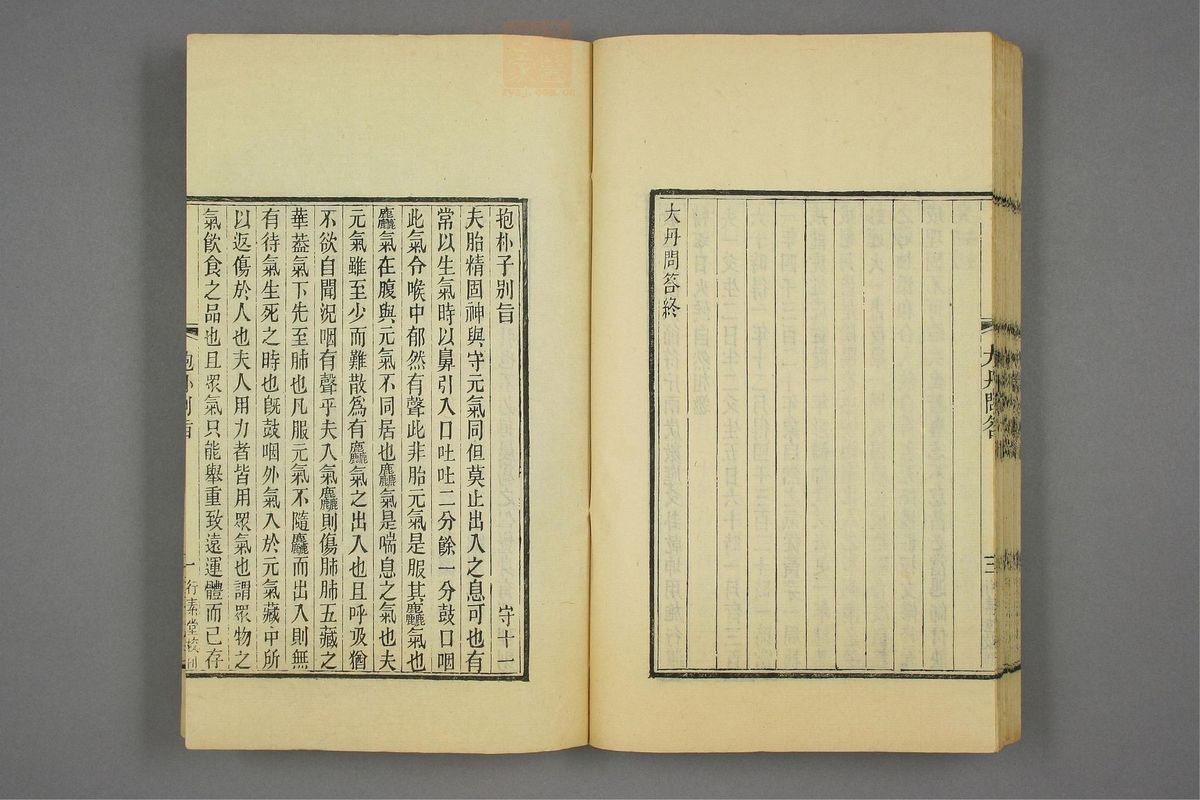 大丹問答
三
大丹問答終
抱朴子別旨　守十一
夫胎精固神與守元氣同但莫止出入之息可也有
常以生氣時以鼻引入口吐吐二分餘一分鼓口咽
此氣令喉中郁然有聲此非胎元氣是服其麤氣也
麤氣在腹與元氣不同居也麤氣是喘息之氣也夫
元氣雖至少而難散爲有麤氣之出入也且呼吸猶
不欲自聞況咽有聲乎夫入氣麤則傷肺肺五藏之
華葢氣下先至肺也凡服元氣不隨麤而出入則無
有待氣生死之時也旣鼓咽外氣入於元氣藏中所
以返傷於人也夫人用力者皆用眾氣也謂眾物之
氣飮食之品也且眾氣只能舉重致遠運體而已存
抱朴別旨
一
行素堂校刊